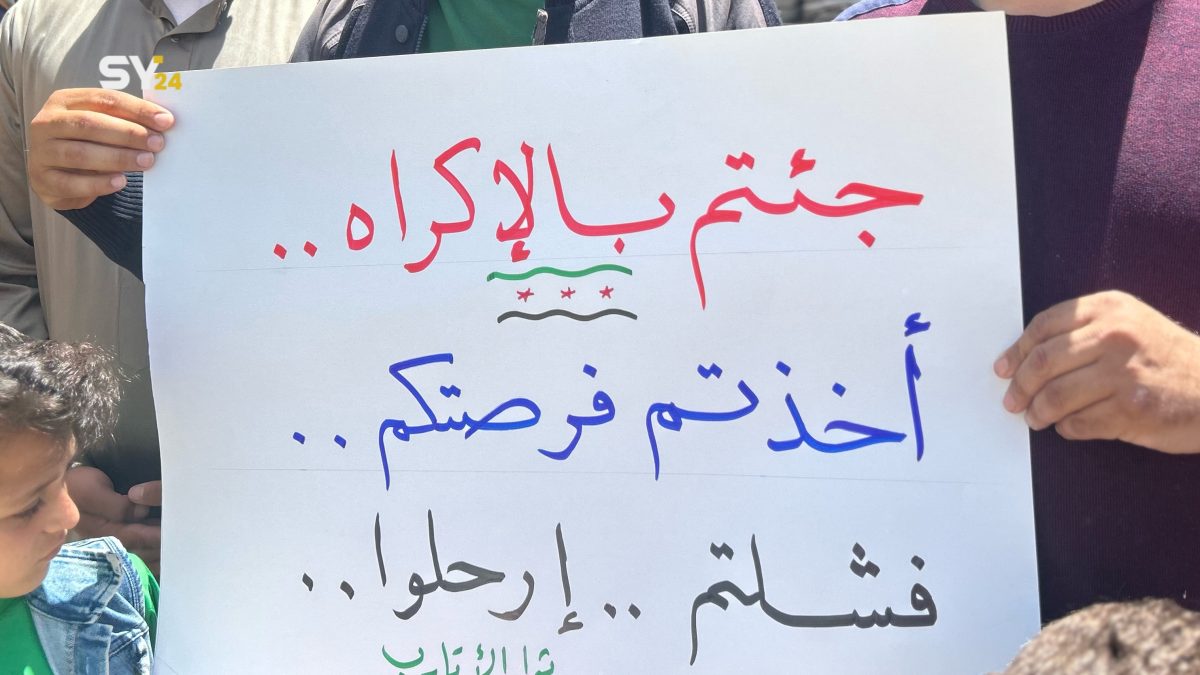 SY24
جئتم بالإكراه ..
أخذتم فرصتكم ..
فشلتم .. إرحلوا ..